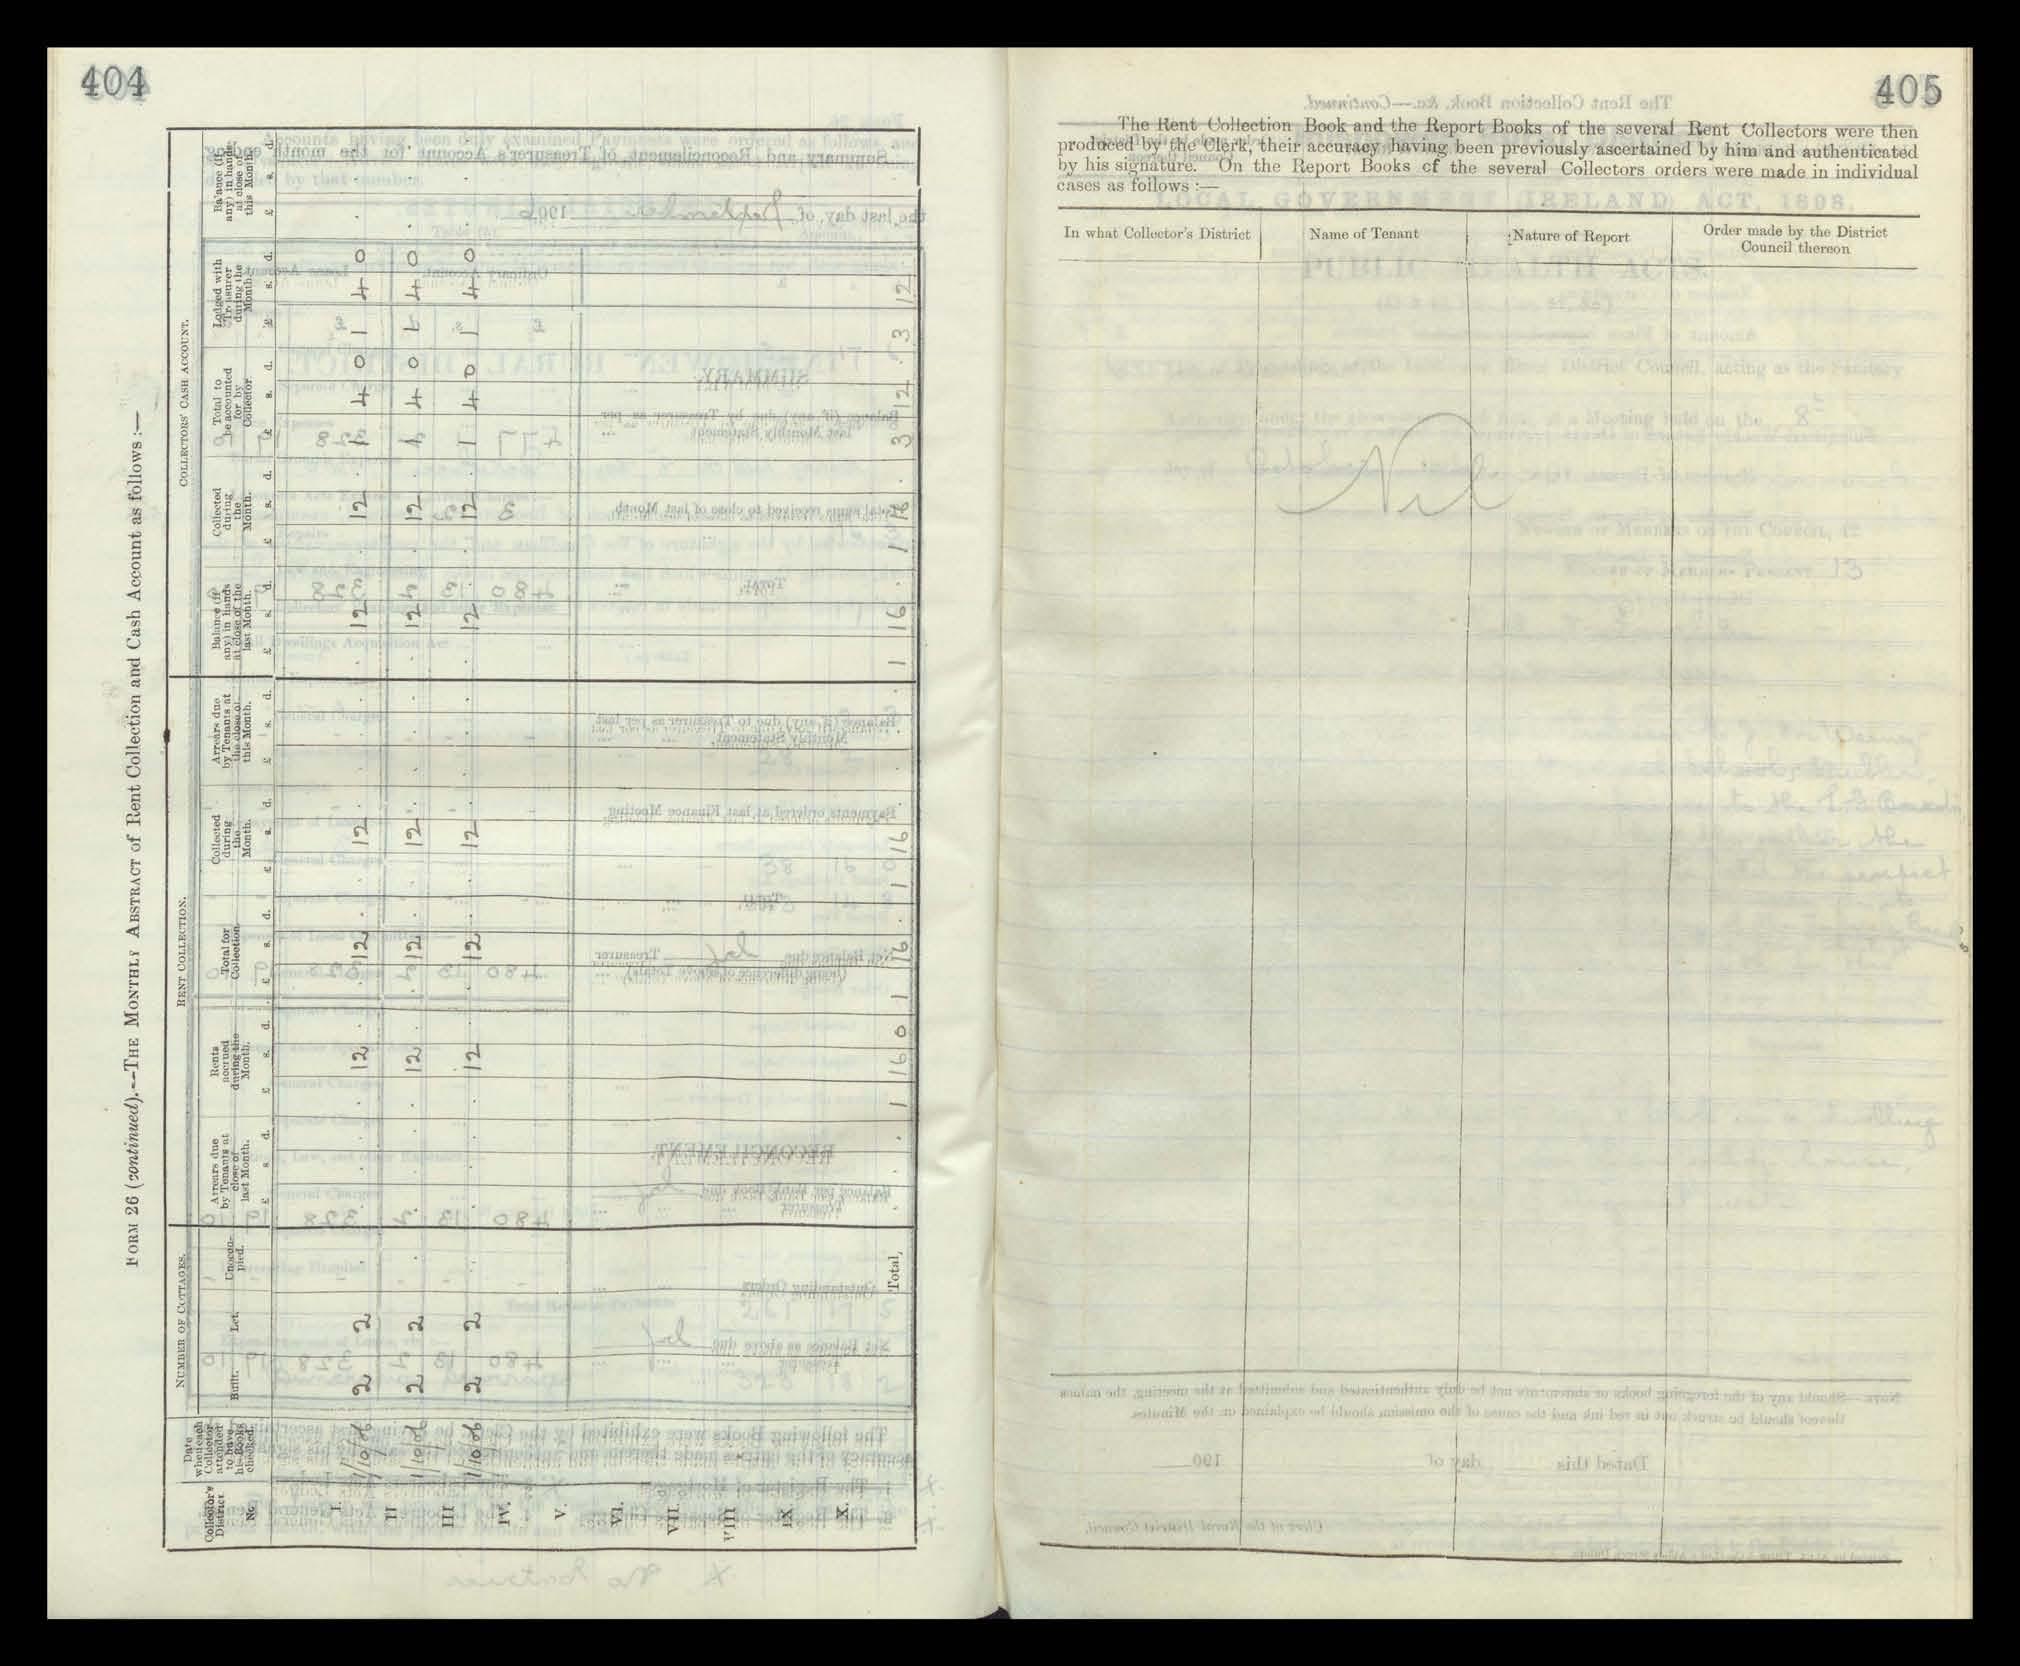 404
FORM 26 (continued).—THE MONTHLY ABSTRACT of Rent Collection and Cash Account as follows :—
NUMBER OF COTTAGES.
RENT COLLECTION.
COLLECTORS' CASH ACCOUNT.
Collector's District. No.
Date when each Collector attended to have his Books checked.
Built.
Let.
Unoccupied.
Arrears due by Tenants at close of last Month.
Rents accrued during the Month.
Total for Collection.
Collected during the Month.
Arrears due by Tenants at the close of this Month.
Balance (if any) in hands at close of the last Month.
Collected during the Month.
Total to be accounted for by Collector.
Lodged with Treasurer during the Month.
Balance (if any) in hands at close of this Month.
£ s. d. £ s. d. £ s. d. £ s. d. £ s. d. £ s. d. £ s. d. £ s. d. £ s. d. £ s. d.
I. 1/10/06 2 2 . . 12 . 12 . 12 . . 12 . 12 . 1 4 0 1 4 0 .
II 1/10/06 2 2 . . 12 . 12 . 12 . . 12 . 12 . 1 4 0 1 4 0 .
III 1/10/06 2 2 . . 12 . 12 . 12 . . 12 . 12 . 1 4 0 1 4 0 .
IV.
V.
VI.
VII.
VIII
IX.
X.
Total, . 1 16 0 1 16 . 1 16 . . 1 16 . 1 16 . 3 12 . 3 12 .
405
The Rent Collection Book and the Report Books of the several Rent Collectors were then
produced by the Clerk, their accuracy having been previously ascertained by him and authenticated
by his signature. On the Report Books of the several Collectors orders were made in individual
cases as follows :—
In what Collector's District
Name of Tenant
Nature of Report
Order made by the District Council thereon
Nil